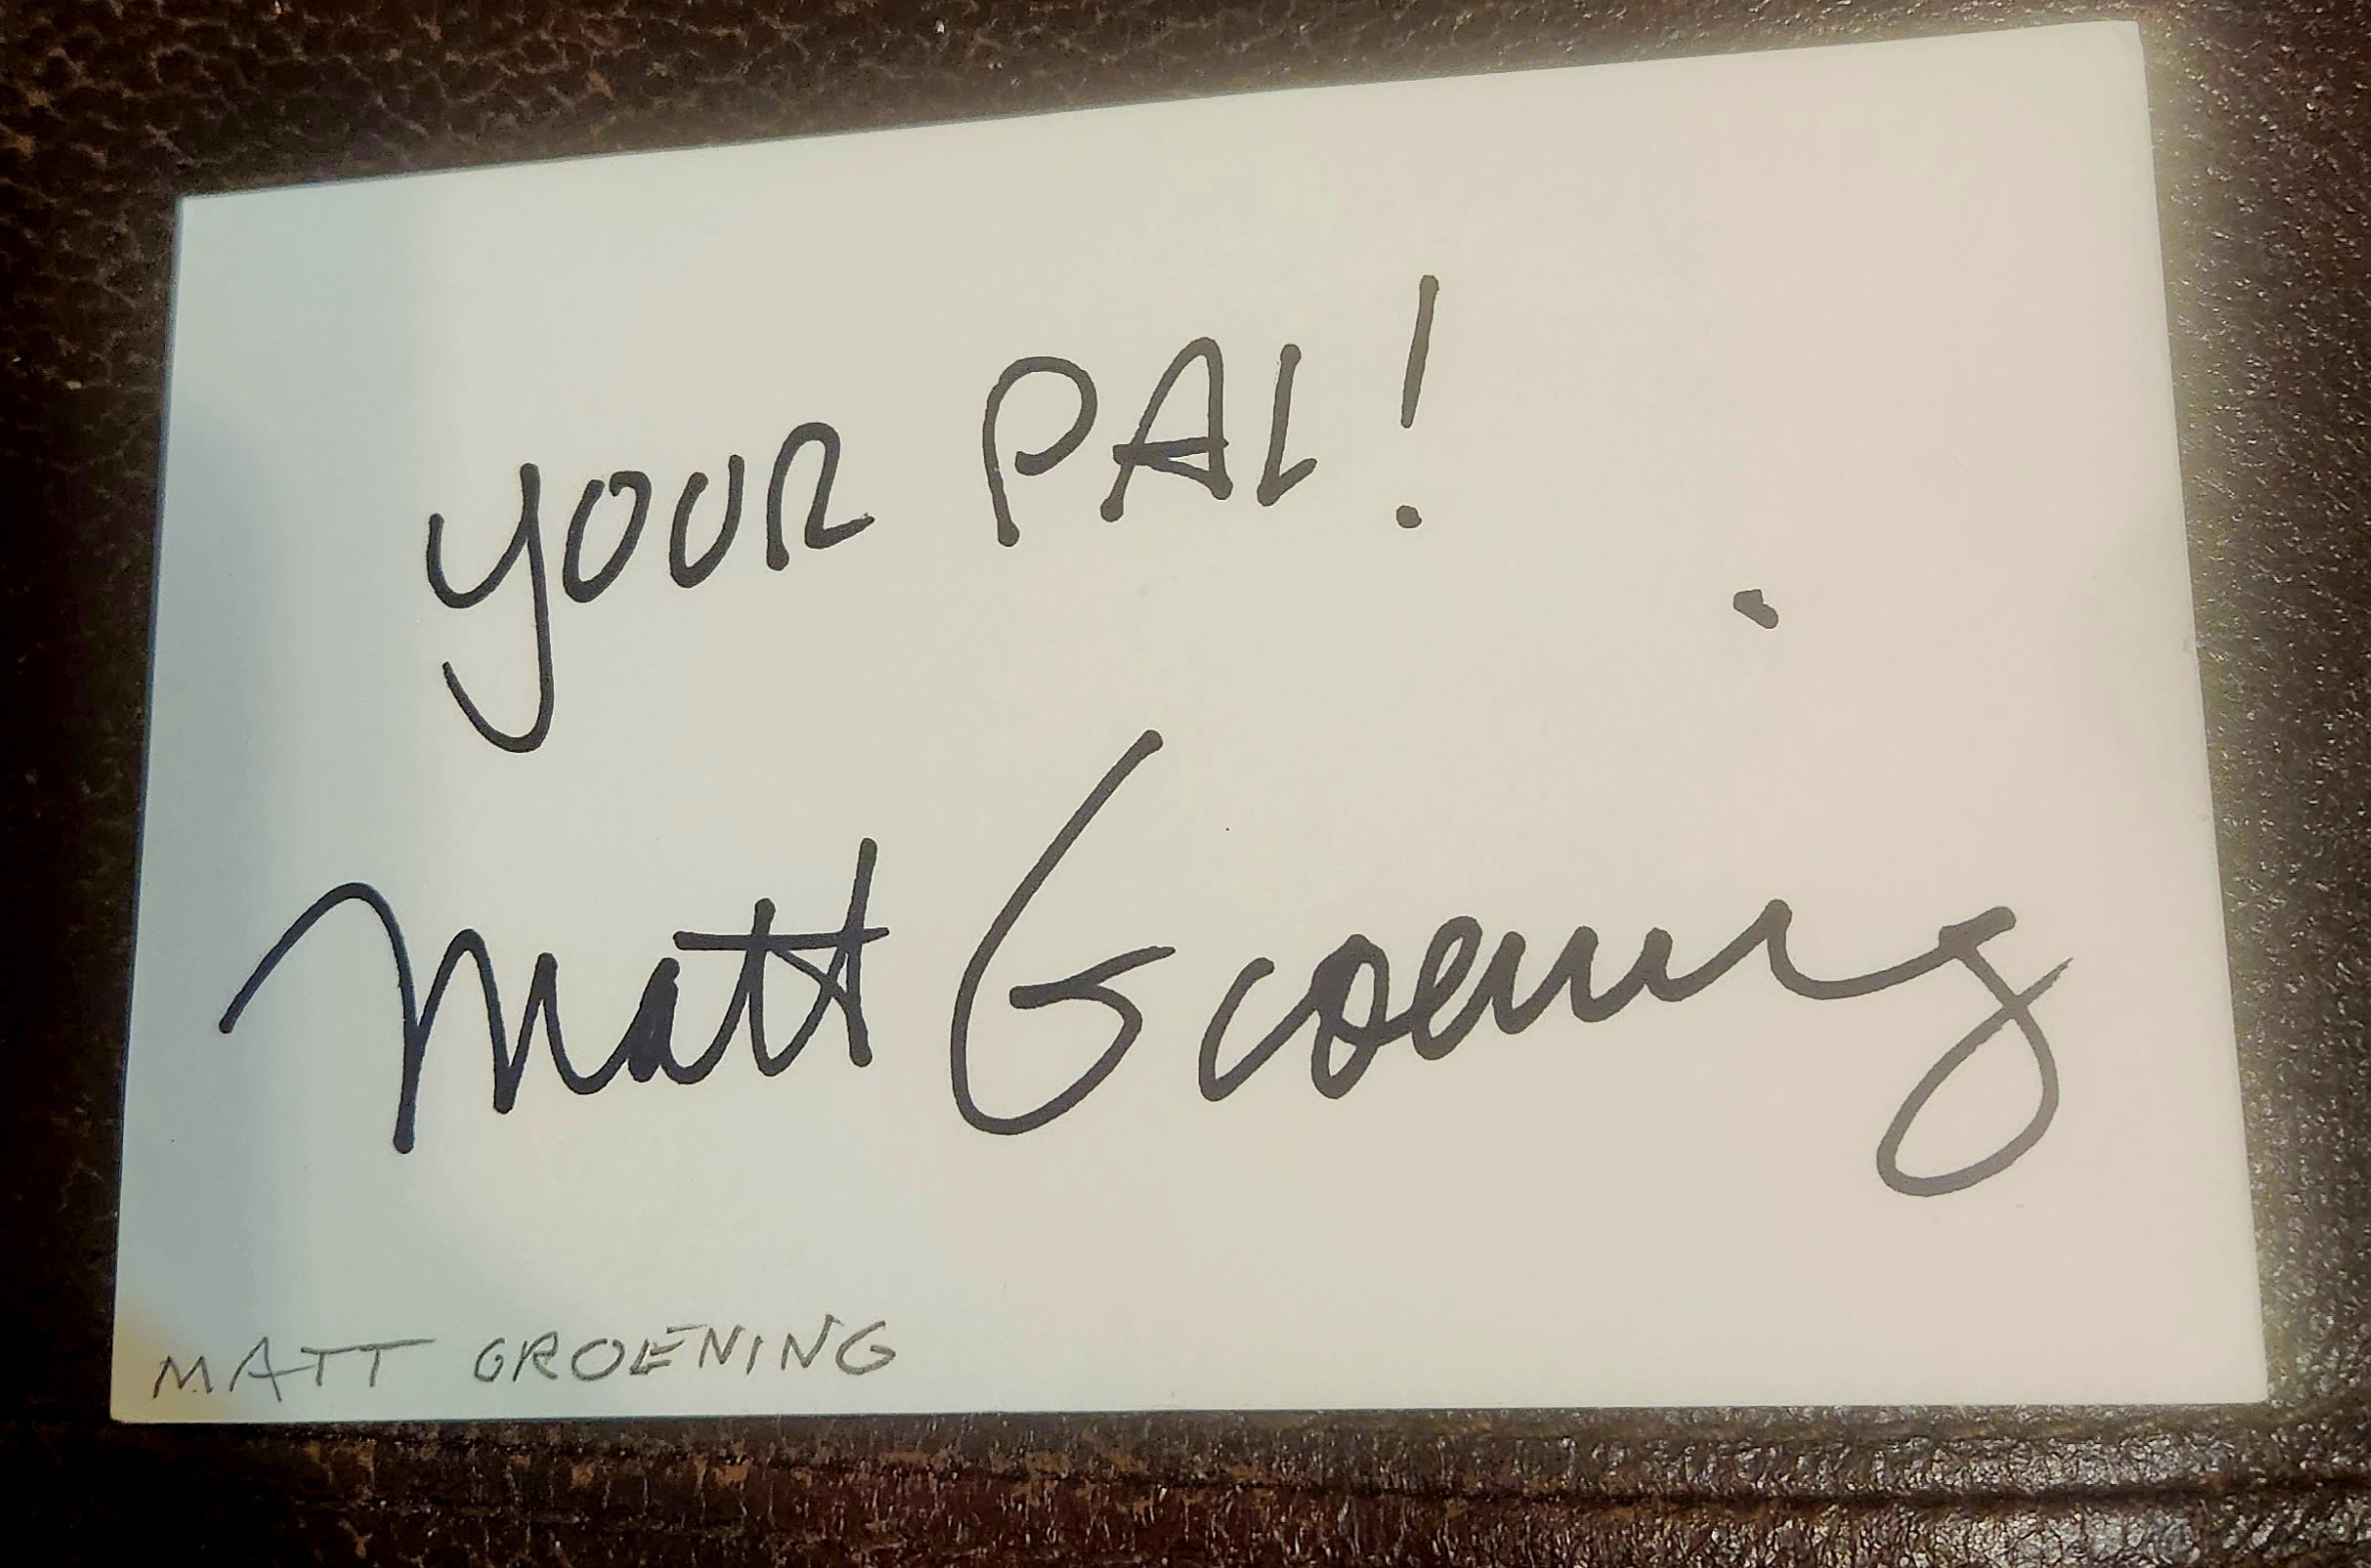 YOUR PAL!
Matt Groening
MATT GROENING